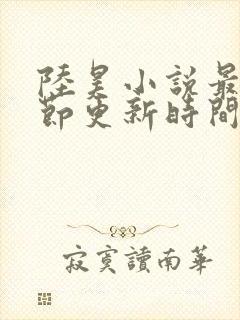 陸昊小說最
節更新時間
寂寞讀南華